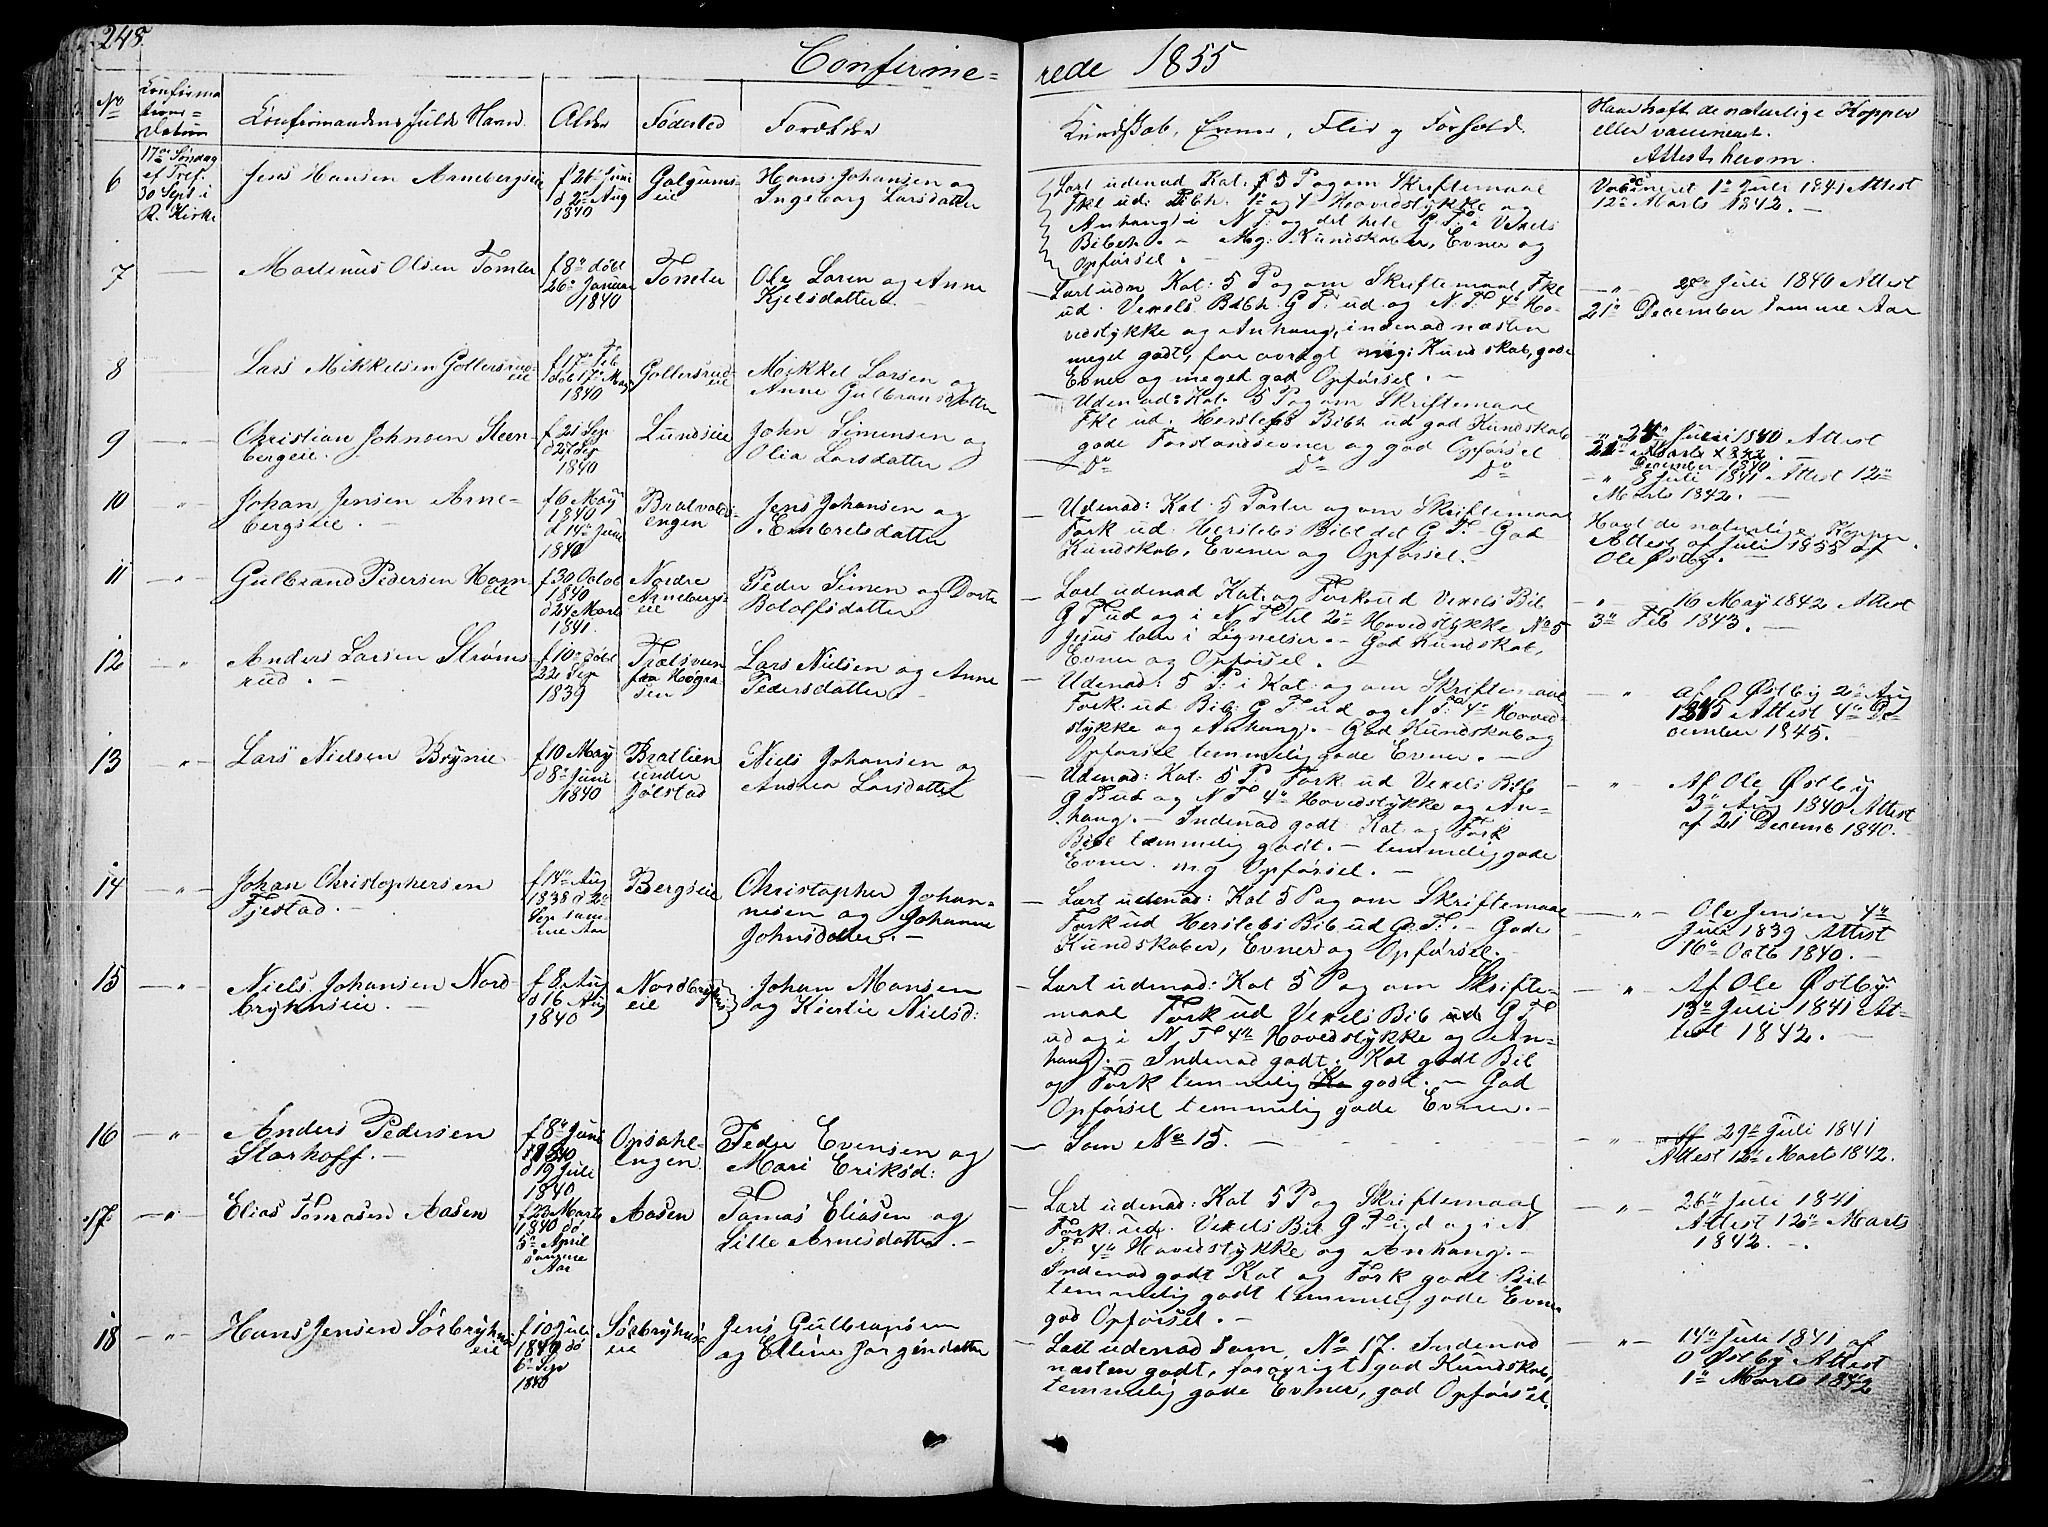 248
Confirme=
rede 1855
No
Confirma
tions=
Datum
Confirmandens fulde Navn
Alder
Fødested
Forældre
Kundskab, Evner, Flid og Forhold
Naar havt de naturlige Kopper
eller vaccineret.
Attest herom.
6
17de Søndag
ef Tref.
30 Sept i
R. Kirke
Jens Hansen Arnebergseie
f 26 Juni
d 2den Aug
1840
Galgums-
eie
Hans Johansen og
Ingeborg Larsdatter
Lært udenad Kat. 5 P og om Skriftemaal
Fkl ud. Bibh. og 4 Hovedstykke og
Anhang i N T. og det hele G. T. i Vexels
Bibeh. – Mg: Kundskaber, Evner og
Opførsel. –
Vaccineret 1ste Juli 1841 Attest
12te Marts 1842. –
7
Martinus Olsen Tomter
f 8de døbt
26de Januar
1840
Tomter
Ole Larsen og Anne
Kjelsdatter –
Lært udn Kat: 5 P og om Skriftemaal, Fkl
ud. Vexels Bibh. G T. ud og N. T. 4de Ho-
vedstykke og Anhang, indenad næsten
meget godt, for øvrigt mg: Kundskab, gode
Evner og meget god Opførsel. –
– " – Juli 1840 Attest
21de December samme Aar
8
Lars Mikkelsen Gollersrud-
eie
f 17de Feb
døb 17de May
1840
Gollersrud-
eie
Mikkel Larsen og
Anne Gulbransdatter
– Udenad: Kat. 5 P og om Skriftemaal
Fkl ud. Herslebs Bibh ud god Kundskab
gode Forstandsevner og god Opførsel
9
– " –
Christian Johnsen Steen-
bergeie.
f 21 Sep
d 27 Sep
1840
Lundseie
John Simensen og
Olia Larsdatter
– Do Do Do
– " 24 Juli 1840 Attest
21de Marts 1842
December 1840
10
"
Johan Jensen Arne-
bergseie –
f 6 May
1840
d 14de Juni
1840
Bratvolds-
engen
Jens Johansen og
Embretsdatter
– Udenad: Kat. 5 Parter og om Skriftemaal
Fork ud. Herslebs Bibl det G. T. – God
Kundskab, Evner og Opførsel. –
– " 8 Juli 1841 Attest 12te
Marts 1842. –
11
– " –
Gulbrand Pedersen Ham-
eie
f 30 Octob
1840
d 24 Marts
1841.
Nordre
Arnebergs-
eie
Peder Simen og Dorte
Botolfsdatter
– Lært udenad Kat. og Fork ud Vexels Bib
G T ud og i N T til 2den Hovedstykke No 5
Jesus taler i Lignelser. – God Kundskab,
Evner og Opførsel. –
Havt de naturlige Kopper.
Attest af Juli 1855 af
Ole Østby. –
– " – 16 May 1842 Attest
3de Feb 1843. –
12
"
Anders Larsen Strøms-
rud. –
f 10de døbt
22 Sep
1839
Trætsveen
fra Høgra-
sen
Lars Nielsen og Anne
Pedersdatter –
– Udenad: 5 P. i Kat. og om Skriftemaal
Fork. ud Bib. G T ud og N T. 4de Hoved-
stykke og Anhang. – God Kundskab og
Opførsel temmelig gode Evner. –
– " af O Østby 2den Aug
1845 Attest 4de De-
cember 1845. –
13
– " –
Lars Nielsen Brynie
f 10 May
d 8de Juni
1840
Bratlien
under
Jølstad
Niels Johansen og
Andrea Larsdatter
– Udenad: Kat: 5 P. Fork ud Vexels Bib
G T ud og N T 4de Hovedstykke og An-
hang. – Indenad godt. Kat og Fork
Bibl temmelig godt. – temmelig gode
Evner. mg Opførsel. –
– " – Af Ole Østby
3de Aug 1840 Attest
af 21 Decemb 1840.
14
– " –
Johan Christophersen
Fjestad. –
f 14de Aug
1838 d 2den
Sep sam-
me Aar
Bergseie
Christopher Johan-
nesen og Johanne
Johnsdatter. –
– Lært udenad: Kat 5 P og om Skriftemaal
Fork ud Herslebs Bib ud G. T. – Gode
Kundskaber, Evner og Opførsel. –
– " – Ole Jensen 4de
Juli 1839 Attest
16de Octb 1840. –
15
– " –
Niels Johansen Nord-
bryhnseie. –
f 8 Aug
d 16 Aug
1840
Nordbryhns
eie
Johan Mansen
og Kierstie Nielsd:
– Lært udenad: Kat 5 P og om Skrifte-
maal Fork ud Vexels Bib G T
ud og i N T 4de Hovedstykke og An-
hang. – Indenad godt. Kat godt Bib
og Fork temmelig godt. – God
Opførsel temmelig gode Evner. –
– " Af Ole Østby
13de Juli 1841 At-
test 1842. –
16
– " –
Anders Pedersen
Storhoff. –
f 8de Juni
1840
d 19 Juli
1840
Opsahl-
engen
Peder Evensen og
Mari Eriksd:
– Som No 15. –
– " 29de Juli 1841
Attest 12te Marts 1842.
17
– " –
Elias Tomasen Aasen
f 23 Marts
1840 dø
5te April
samme
Aar
Aasen
Tomas Eliasen og
Lille Arnesdatter. –
– Lært udenad: Kat 5 P og Skriftemaal
Fork. ud. Vexels Bib G T ud og i N
T. 4de Hovedstykke og Anhang. –
Indenad godt Kat og Fork godt Bib
temmelig godt temmelig gode Evner
god Opførsel. –
– " – 26de Juli 1841
Attest 12te Marts
1842. –
18
– " –
Hans Jensen Sørbryhns-
eie
f 10 Juli
1840 dø
6te Sep
1840
Sørbryhns
eie
Jens Gulbransen
og Elline Jørgensdatter
– Læst udenad som No 17. Indenad
næsten godt, forøvrigt god Kundskab,
temmelig gode Evner, god Opførsel.
– " 14de Juli 1841 af
O Østby Attest
1ste Marts 1842